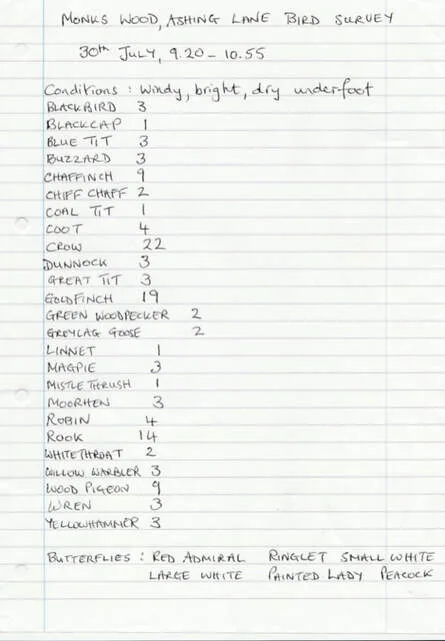 MONKS WOOD, ASHING LANE BIRD SURVEY
30th JULY, 9.20 - 10.55
Conditions : Windy, bright, dry underfoot
BLACKBIRD 3
BLACKCAP 1
BLUE TIT 3
BUZZARD 3
CHAFFINCH 9
CHIFF CHAFF 2
COAL TIT 1
COOT 4
CROW 22
DUNNOCK 3
GREAT TIT 3
GOLDFINCH 19
GREEN WOODPECKER 2
GREYLAG GOOSE 2
LINNET 1
MAGPIE 3
MISTLE THRUSH 1
MOORHEN 3
ROBIN 4
ROOK 14
WHITETHROAT 2
WILLOW WARBLER 3
WOOD PIGEON 9
WREN 3
YELLOWHAMMER 3
BUTTERFLIES : RED ADMIRAL RINGLET SMALL WHITE
LARGE WHITE PAINTED LADY PEACOCK